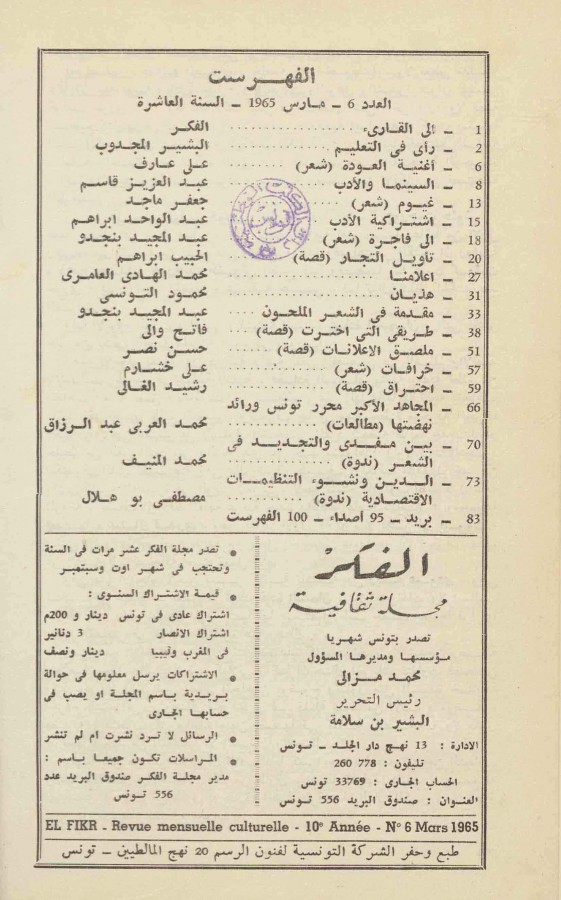 الفهرست
العدد 6 – مارس 1965 – السنة العاشرة
1 – الى القارىء .......... الفكر
2 – رأى فى التعليم .......... البشير المجدوب
6 – أغنية العودة (شعر) .......... على عارف
8 – السينما والأدب .......... عبد العزيز قاسم
13 – غيوم (شعر) .......... جعفر ماجد
15 – اشتراكية الأدب .......... عبد الواحد ابراهم
18 – الى فاجرة (شعر) .......... عبد المجيد بنجدو
20 – تاويل التجار (قصة) .......... الحبيب ابراهم
27 – اعلامنا .......... محمد الهادى العامرى
31 – هذيان .......... محمود التونسى
33 – مقدمة فى الشعر الملحون .... عبد المجيد بنجدو
38 – طريقى التى اخترت (قصة) .... فاتح والى
51 – ملصق الاعلانات (قصة) .... حسن نصر
57 – خرافات (شعر) .......... على خشارم
59 – احتراق (قصة) .......... رشيد الغالى
66 – المجاهد الأكبر محرر تونس ورائد
نهضتها (مطالعات) .......... محمد العربى عبد الرزاق
70 – بين مفدى والتجديد فى
الشعر (ندوة) .......... محمد المنيف
73 – الدين ونشوء التنظيمات
الاقتصادية (ندوة) .......... مصطفى بو هلال
83 – بريد – 95 أصداء – 100 الفهرست
الفكر
مجلة ثقافية
تصدر بتونس شهريا
مؤسسها ومديرها المسؤول
محمد مزالى
رئيس التحرير
البشير بن سلامة
الادارة : 13 نهج دار الجلد – تونس
تليفون : 778 260
الحساب الجارى : 33769 تونس
العنوان : صندوق البريد 556 تونس
● تصدر مجلة الفكر عشر مرات فى السنة
وتحتجب فى شهر اوت وسبتمبر
● قيمة الاشتراك السنوى :
اشتراك عادى فى تونس دينار و 200م
اشتراك الانصار 3 دنانير
فى المغرب وليبيا دينار ونصف
● الاشتراكات يرسل معلومها فى حوالة
بريدية باسم المجلة او يصب فى
حسابها الجارى
● الرسائل لا ترد نشرت ام لم تنشر
● المراسلات تكون جميعا باسم :
مدير مجلة الفكر صندوق البريد عدد
556 تونس
EL FIKR - Revue mensuelle culturelle - 10e Année - N° 6 Mars 1965
طبع وحفر الشركة التونسية لفنون الرسم 20 نهج المالطيين – تونس